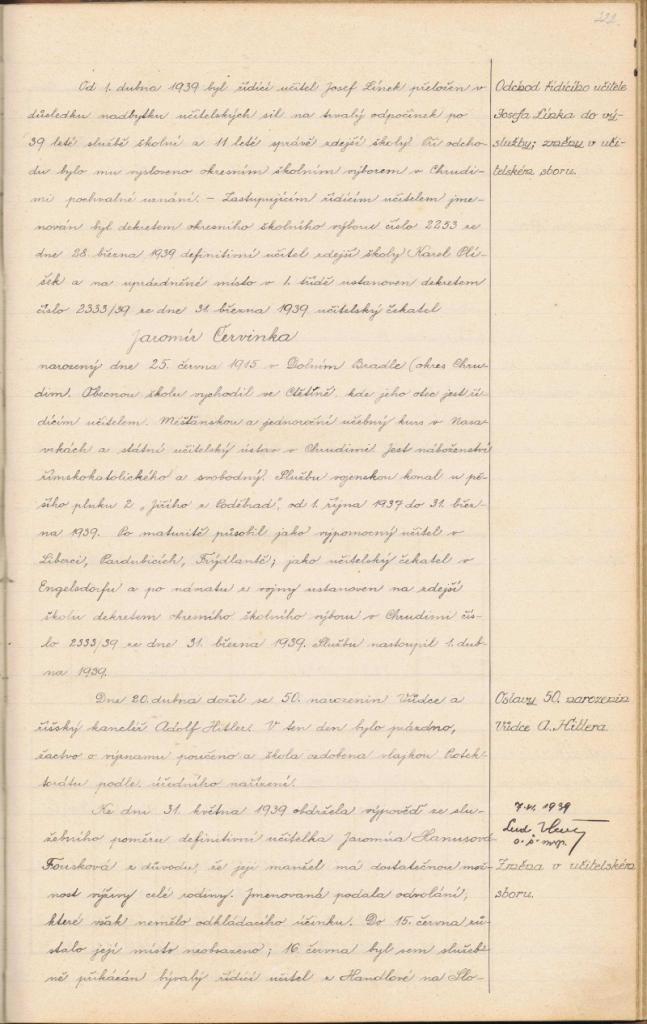 221.
Od 1. dubna 1939 byl řídící učitel Josef Línek přeložen v
důsledku nadbytku učitelských sil na trvalý odpočinek po
39 leté službě školní a 11 leté správě zdejší školy. Při odcho-
du bylo mu vysloveno okresním školním výborem v Chrudi-
mi pochvalné uznání. – Zastupujícím řídícím učitelem jme-
nován byl dekretem okresního školního výboru číslo 2253 ze
dne 28. března 1939 definitivní učitel zdejší školy Karel Plí-
šek a na uprázdněné místo v 1. třídě ustanoven dekretem
číslo 2333/39 ze dne 31. března 1939 učitelský čekatel
Jaromír Červinka
narozený dne 25. června 1915 v Dolním Bradle (okres Chru-
dim. Obecnou školu vychodil ve Ctětíně, kde jeho otec jest ří-
dícím učitelem. Měšťanskou a jednoroční učebný kurs v Nasa-
vrkách a státní učitelský ústav v Chrudimi. Jest náboženství
římskokatolického a svobodný. Službu vojenskou konal u pě-
šího pluku 2 „Jiřího z Poděbrad", od 1. října 1937 do 31. břez-
na 1939. Po maturitě působil jako výpomocný učitel v
Liberci, Pardubicích, Frýdlantě; jako učitelský čekatel v
Engelsdorfu a po návratu z vojny ustanoven na zdejší
školu dekretem okresního školního výboru v Chrudimi čís-
lo 2333/39 ze dne 31. března 1939. Službu nastoupil 1. dub-
na 1939.
Dne 20. dubna dožil se 50. narozenin Vůdce a
říšský kancléř Adolf Hitler. V ten den bylo prázdno,
žactvo o významu poučeno a škola ozdobena vlajkou Protek-
torátu podle úředního nařízení.
Ke dni 31. května 1939 obdržela výpověď ze slu-
žebního poměru definitivní učitelka Jaromíra Hanusová
Fousková z důvodu, že její manžel má dostatečnou mož-
nost výživy celé rodiny. Jmenovaná podala odvolání,
které však nemělo odkládacího účinku. Do 15. června zů-
stalo její místo neobsazeno; 16. června byl sem služeb-
ně přikázán bývalý řídící učitel z Handlové na Slo-
Odchod řídícího učitele
Josefa Línka do vý-
služby; změny v uči-
telském sboru.
Oslavy 50. narozenin
Vůdce A. Hitlera.
7.VI. 1939
Lud.
Změna v učitelském
sboru.